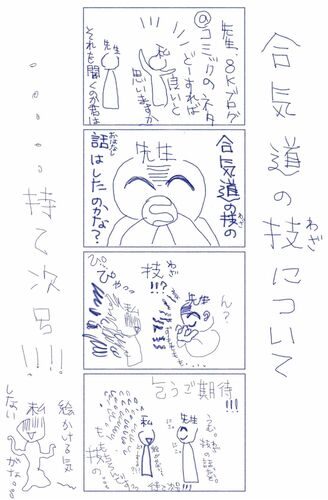 合気道の技について
わざ
先生、8Kブログ
@コミックのネタ
どーすれば
良いと
思いますか?
私
先生
それを聞くのか君は
先生
合気道の技の
わざ
話はしたのかな?
おはなし
ん?
先生
技
わざ
!!?
ぴ…
ぴゃっ
私
乞うご期待!!!
先生
うむ。技の話を。
私
も
技の
待て次号!!!
・・・・・持て次号!!!!
絵かける気
私
しない
がな。